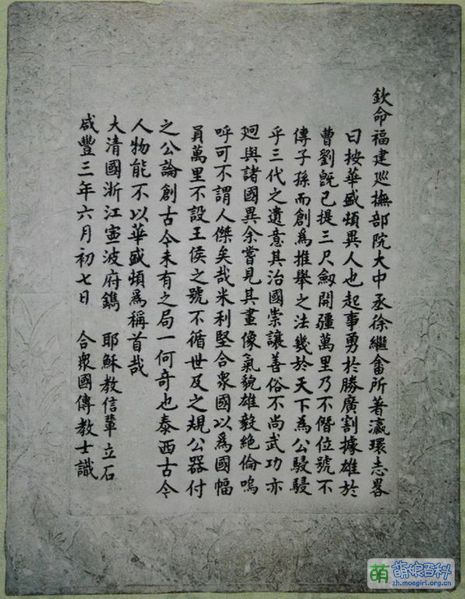 欽命福建巡撫部院大中丞徐繼畬所著瀛環志畧
曰按華盛頓異人也起事勇於勝廣割據雄於
曹劉旣已提三尺劍開疆萬里乃不僭位號不
傳子孫而創爲推舉之法幾於天下爲公駸駸
乎三代之遺意其治國崇讓善俗不尚武功亦
迥與諸國異余嘗見其畫像氣貌雄毅絕倫嗚
呼可不謂人傑矣哉米利堅合衆國以爲國幅
員萬里不設王侯之號不循世及之規公器付
之公論創古今未有之局一何奇也泰西古今
人物能不以華盛頓爲稱首哉
大清國浙江寧波府鐫 耶穌教信輩立石
咸豐三年六月初七日 合衆國傳教士識
萌 萌娘百科
zh.moegirl.org.cn